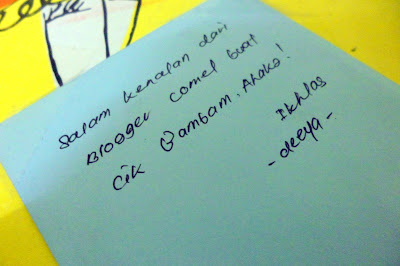 Salam kenalan dari
Blogger comel buat
Cik Gambam. Ahaks!
Ikhlas
-deeya-